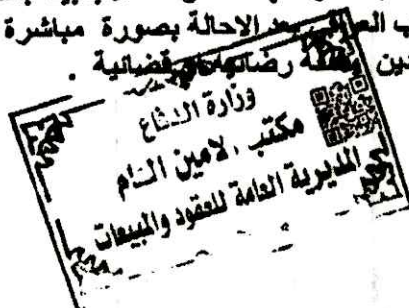 الاحالة بصورة مباشرة
رضائية او قضائية .
وزارة الدفاع
مكتب الامين العام
المديرية العامة للعقود والمبيعات